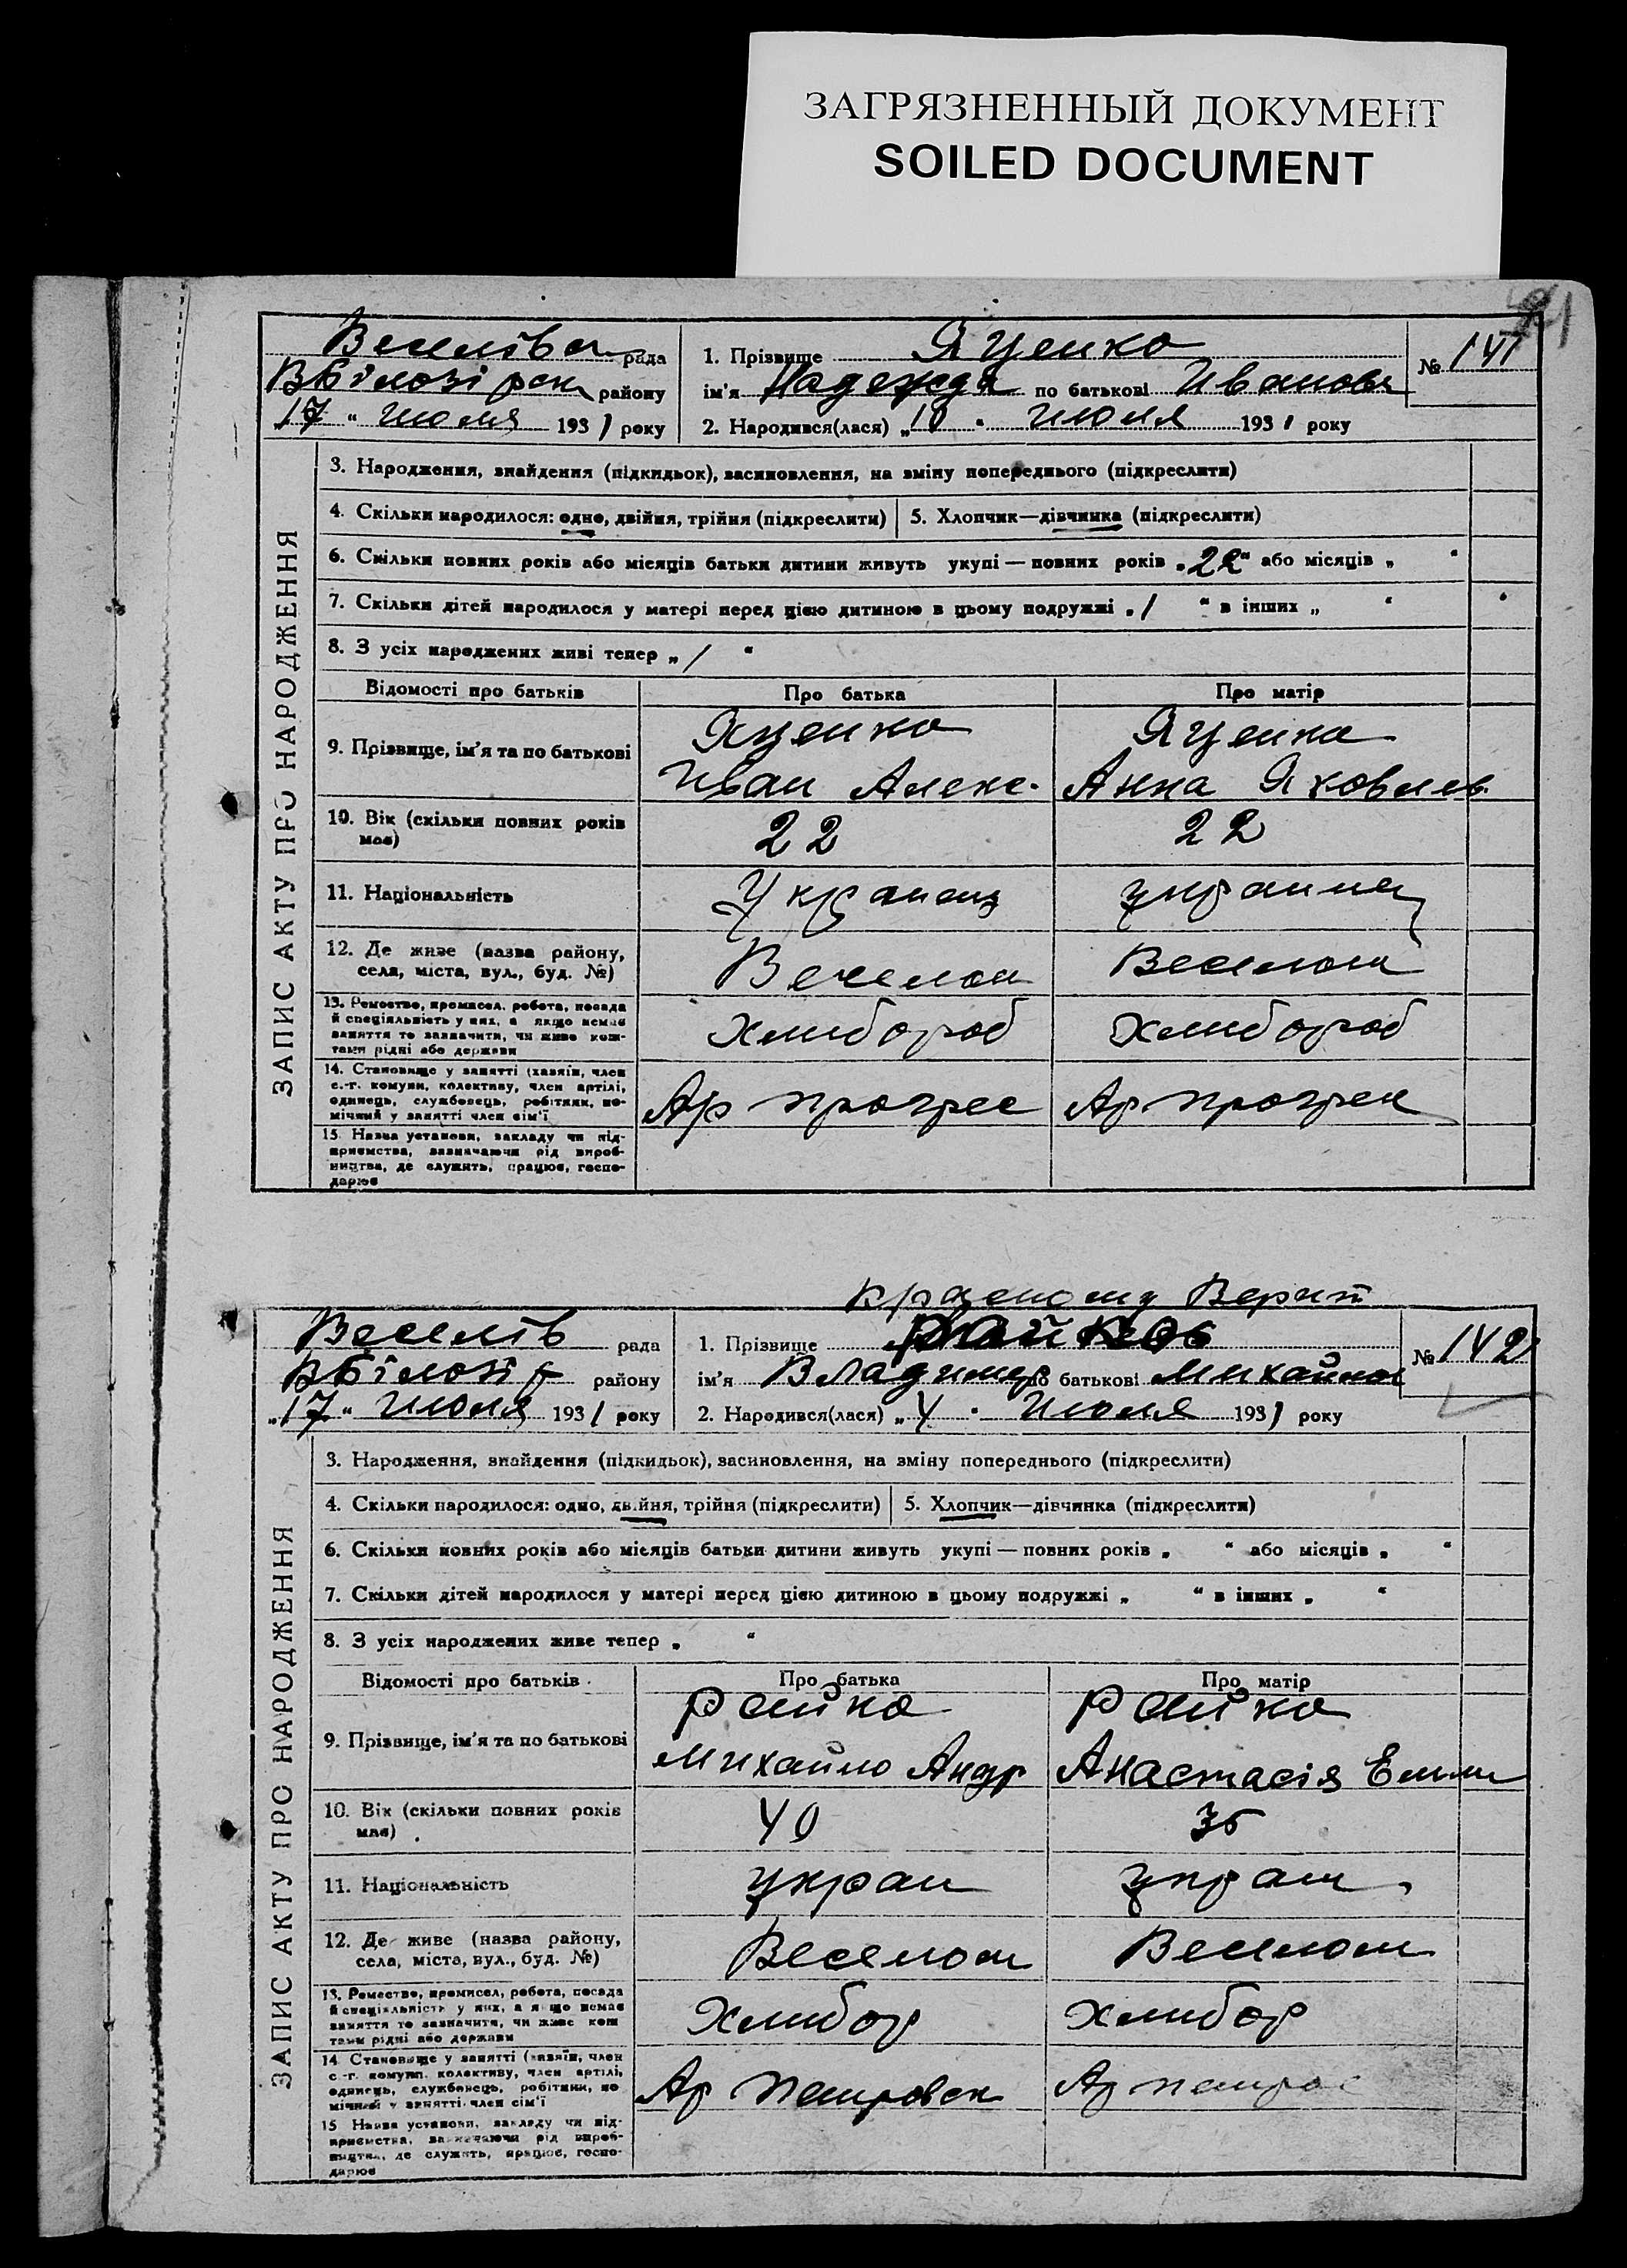 ЗАГРЯЗНЕННЫЙ ДОКУМЕНТ
SOILED DOCUMENT
ЗАПИС АКТУ ПРО НАРОДЖЕННЯ
рада
району
17 " июля 1931 року
1. Прізвище Яценко
ім'я Надежда по батькові Иванова
2. Народився(лася) „10 " июля 1931 року
№ 141
3. Народження, знайдення (підкидьок), засиновлення, на зміну попереднього (підкреслити)
4. Скільки народилося: одно, двійня, трійня (підкреслити)
5. Хлопчик—дівчинка (підкреслити)
6. Скільки повних років або місяців батьки дитини живуть укупі — повних років „22" або місяців „ "
7. Скільки дітей народилося у матері перед цією дитиною в цьому подружжі „1 " в інших „ "
8. З усіх народжених живі тепер „1 "
Відомості про батьків Про батька Про матір
9. Прізвище, ім'я та по батькові
Яценко
Иван Алекс.
Яценко
Анна Яковлев
10. Вік (скільки повних років
має)
22 22
11. Національність
12. Де живе (назва району,
села, міста, вул., буд. №)
13. Ремество, промисел, робота, посада
й спеціяльність у них, а якщо немає
заняття то зазначити, чи живе кош-
тами рідні або держави
Хлибороб Хлибороб
14. Становище у занятті (хазяїн, член
с.-г. комуни, колективу, член артілі,
одинець, службовець, робітник, по-
мічний у занятті член сім'ї
Ар прогрес Ар прогрес
15. Назва установи, закладу чи під-
приємства, зазначаючи рід вироб-
ництва, де служить, працює, госпо-
дарює
ЗАПИС АКТУ ПРО НАРОДЖЕННЯ
Веселів рада
ВБілозір району
„17" июля 1931 року
1. Прізвище
ім'я Владимир по батькові Михайлов
2. Народився(лася) „4 " Июля 1931 року
№ 142
3. Народження, знайдення (підкидьок), засиновлення, на зміну попереднього (підкреслити)
4. Скільки народилося: одно, двійня, трійня (підкреслити)
5. Хлопчик—дівчинка (підкреслити)
6. Скільки повних років або місяців батьки дитини живуть укупі — повних років „ " або місяців „ "
7. Скільки дітей народилося у матері перед цією дитиною в цьому подружжі „ " в інших „ "
8. З усіх народжених живе тепер „ "
Відомості про батьків Про батька Про матір
9. Прізвище, ім'я та по батькові
Райко
Михайло Андр
Райко
Анастасія
10. Вік (скільки повних років
має)
40 35
11. Національність
12. Де живе (назва району,
села, міста, вул., буд. №)
13. Ремество, промисел, робота, посада
й спеціяльність у них, а якщо немає
заняття то зазначити, чи живе кош
тами рідні або держави
Хлибор Хлибор
14. Становище у занятті (хазяїн, член
с.-г. комуни, колективу, член артілі,
одинець, службовець, робітник, по
мічний у занятті член сім'ї
Ар петровск Ар
15. Назва установи, закладу чи під-
приємства, зазначаючи рід вироб-
ництва, де служить, працює, госпо-
дарює